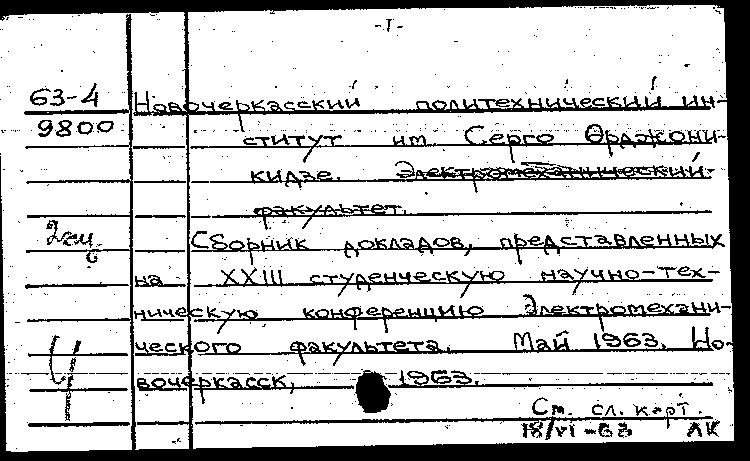 -I-
63-4 Новочеркасский политехнический ин-
9800 ститут им. Серго Орджони-
кидзе. Электромеханический
факультет.
Сборник докладов, представленных
на XXIII студенческую научно-тех-
ническую конференцию Электромехани-
ческого факультета. Май 1963. Но-
вочеркасск, 1963.
См. сл. карт.
18/VI-63 ЛК